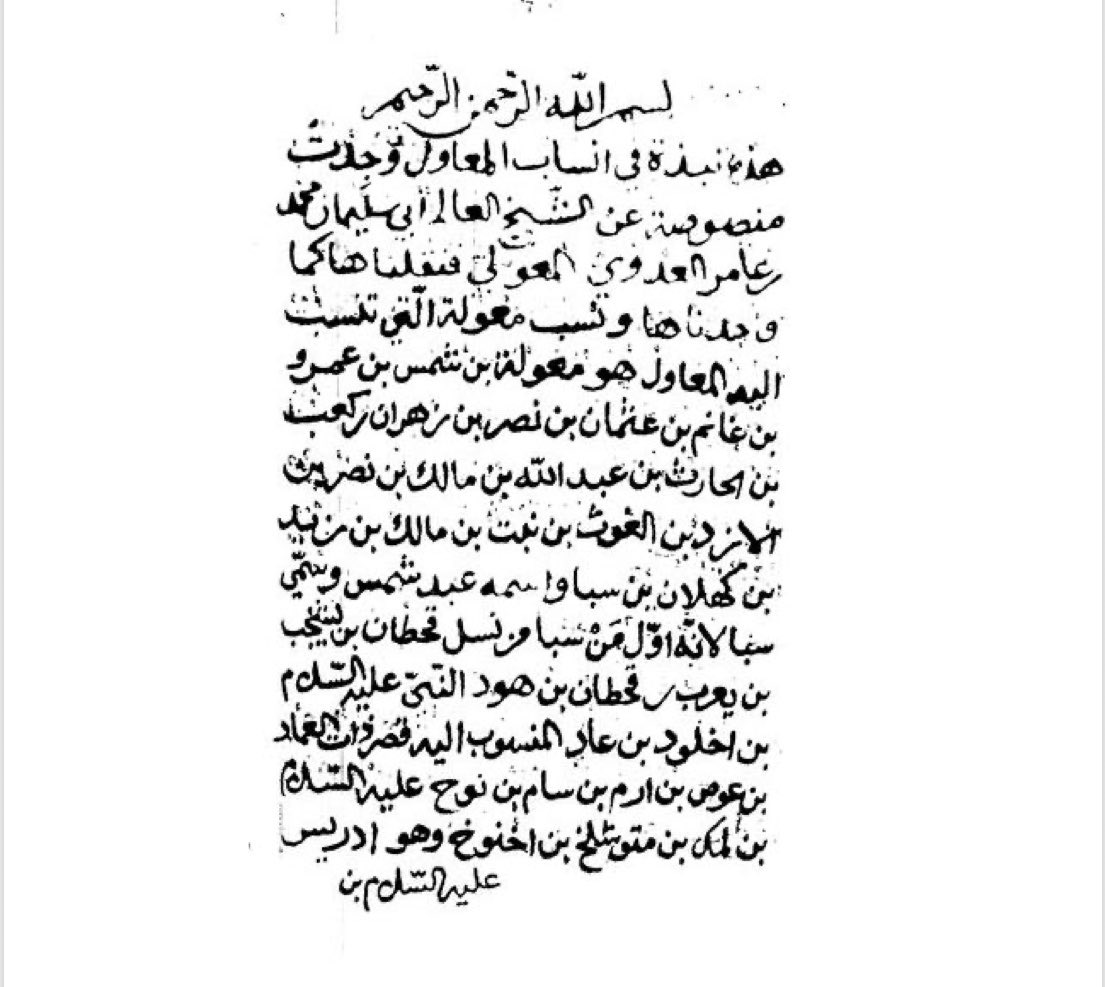 بسم الله الرّحمن الرّحيم
هذه نبذة في انساب المعاول وُجِدَتْ
منصوصة عن الشّيخ العالم أبي سليمان محمد
بن عامر العدوي المعولي فنقلناها كما
وجدناها ونسب معولة الّتي تنسب
اليه المعاول هو معولة بن شمس بن عمرو
بن غانم بن عثمان بن نصر بن زهران بن كعب
بن الحارث بن عبد الله بن مالك بن نصر بن
الازد بن الغوث بن نبت بن مالك بن زيد
بن كهلان بن سبا واسمه عبد شمس وسمّي
سبا لانّه اوّل مَنْ سبا من نسل قحطان بن يشجب
بن يعرب بن قحطان بن هود النّبيّ عليه السّلام
بن اخلود بن عاد المنسوب اليه قصر ذات العماد
بن عوص بن ارم بن سام بن نوح عليه السّلام
بن لمك بن متوشلخ بن اخنوخ وهو ادريس
عليه السّلام بن